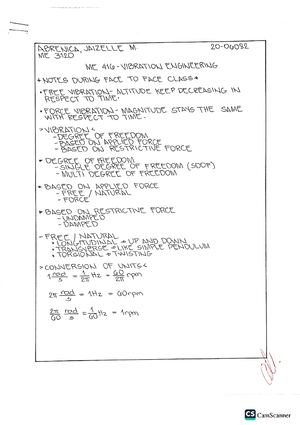 ABRENICA, JAIZELLE M. 20-06092
ME 3120
ME 416 - VIBRATION ENGINEERING
* NOTES DURING FACE TO FACE CLASS *
• FREE VIBRATION - ALTITUDE KEEP DECREASING IN
RESPECT TO TIME.
• FORCE VIBRATION - MAGNITUDE STAYS THE SAME
WITH RESPECT TO TIME.
> VIBRATION <
- DEGREE OF FREEDOM
- BASED ON APPLIED FORCE
- BASED ON RESTRICTIVE FORCE
* DEGREE OF FREEDOM
- SINGLE DEGREE OF FREEDOM (SDOF)
- MULTI DEGREE OF FREEDOM
* BASED ON APPLIED FORCE
- FREE / NATURAL
- FORCE
* BASED ON RESTRICTIVE FORCE
- UNDAMPED
- DAMPED
- FREE / NATURAL
• LONGITUDINAL → UP AND DOWN
• TRANSVERSE → LIKE SIMPLE PENDULUM
• TORSIONAL → TWISTING
> CONVERSION OF UNITS <
1 rad/s = 1/2π Hz = 60/2π rpm
2π rad/s = 1Hz = 60rpm
2π/60 rad/s = 1/60 Hz = 1rpm
CS CamScanner